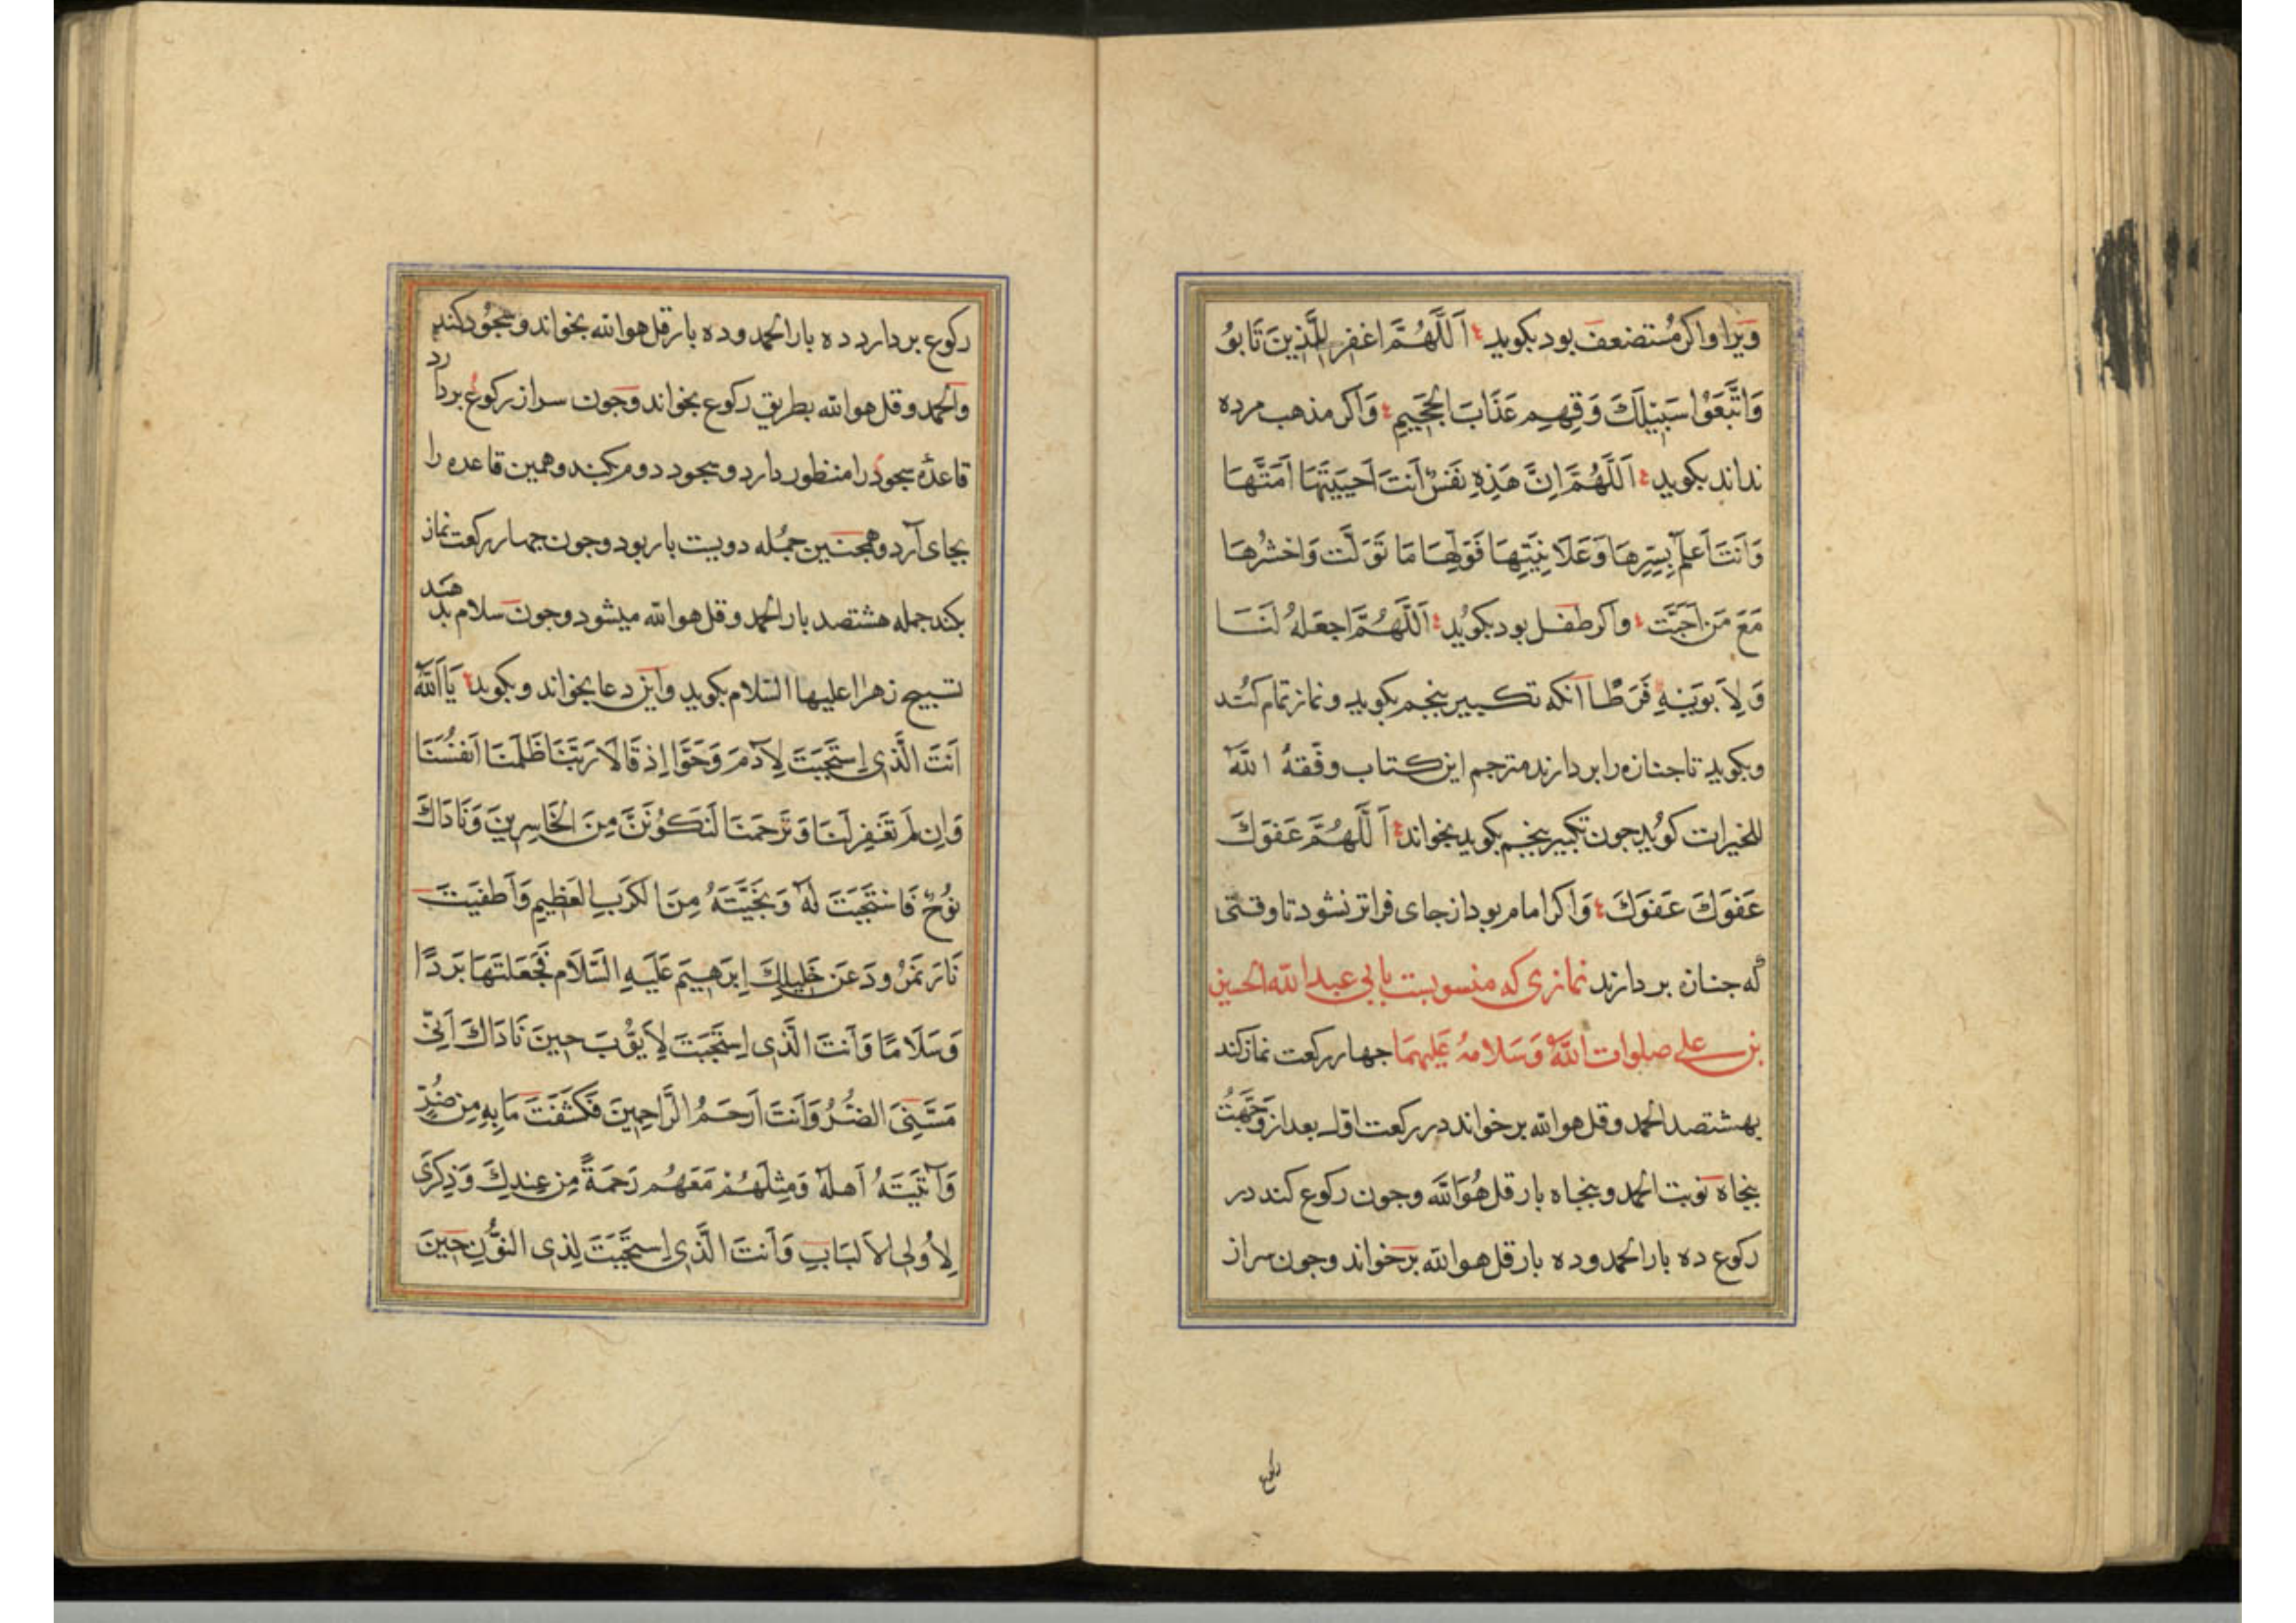 ویرا و اکر مُستضعف بود بکوید اَللَّهُمَّ اغفِر لِلَّذینَ تَابوُ
وَاتَّبَعَوُا سَبیٖلَكَ وَقِهِم عَذَابَ الجَحیٖمِ وَاکر مذهب مرده
نداند بکوید اَللَّهُمَّ اِنَّ هَذِهِ نَفسٌ اَنتَ اَحیَیتَهَا اَمَتَّهَا
وَاَنتَ اَعلَمُ بِسِرِّهَا وَعَلَانِیَتِهَا فَوَلِّهَا مَا تَوَلَّت وَاحشُرهَا
مَعَ مَن اَحَبَّت واکر طفل بود بکوُید اَللَّهُمَّ اجعَلهُ لَنَا
وَلِاَبَوَیهِ فَرَطًا آنکه تکبیر پنجم بکوید و نماز تمام کُند
وبکوید تا جنازه را بردارند مترجم این کتاب وفّقهُ اللّهُ
للخیرات کویُد جون تکبیر پنجم بکوید بخواند اَللَّهُمَّ عَفوَكَ
عَفوَكَ عَفوَكَ وَاکر امام بود از جای فراتر نشود تا وقتی
که جنازه بردارند نمازی که منسوبست بابی عبدالله الحسین
بن علی صلوات اللّهُ وَسَلامهُ عَلیهِمَا جهار رکعت نماز کند
بهشتصد الحمد و قل هوالله بر خواند در رکعت اوّل بعد از وَجَّهتُ
پنجاه نوبت الحمد و پنجاه بار قل هُوَاللّه وجون رکوع کند در
رکوع ده بار الحمد و ده بار قل هوالله بر خواند وجون سر از
رکوع
رکوع بردارد ده بار الحمد و ده بار قل هوالله بخواند و سجُود کند
والحمد و قل هوالله بطریق رکوع بخواند وجون سر از رکوع بردارد
قاعدهٔ سجود را منظور دارد و سجود دوم کند و همین قاعده را
بجای آرد و همجنین جمُله دویست بار بود وجون جهار رکعت نماز
بکند جمله هشتصد بار الحمد و قل هوالله میشود وجون سلام بدهد
تسبیح زهرا علیها السّلام بکوید و این دعا بخواند و بکوید یَا اَللّهُ
اَنتَ الَّذی اِستَجَبتَ لِاٰدَمَ وَحَوَّا اِذ قَالَا رَبَّنَا ظَلَمنَا اَنفُسَنَا
وَاِن لَم تَغفِر لَنَا وَتَرحَمنَا لَنَکوُنَنَّ مِنَ الخَاسِریِنَ وَنَادَاكَ
نوُحٌ فَاستَجَبتَ لَهُ وَنَجَّیتَهُ مِنَ الکَربِ العَظِیمِ وَاَطفَیتَ
نَارَ نَمرُودَ عَن خَلِیلِكَ اِبرَهِیمَ عَلَیهِ السَّلَام فَجَعَلتَهَا بَردًا
وَسَلَامًا وَاَنتَ الَّذی اِستَجَبتَ لِاَیوّبَ حینَ نَادَاكَ اَنّی
مَسَّنِیَ الضُّرُّ وَاَنتَ اَرحَمُ الرَّاحِمِینَ فَکَشَفتَ مَا بِهِ مِن ضُرٍّ
وَآتَیتَهُ اَهلَهُ وَمِثلَهُم مَعَهُم رَحمَةً مِن عِندِكَ وَذِکرَی
لِاُولِی الاَلبَابِ وَاَنتَ الَّذی اِستَجَبتَ لِذِی النوُّنِ حِینَ